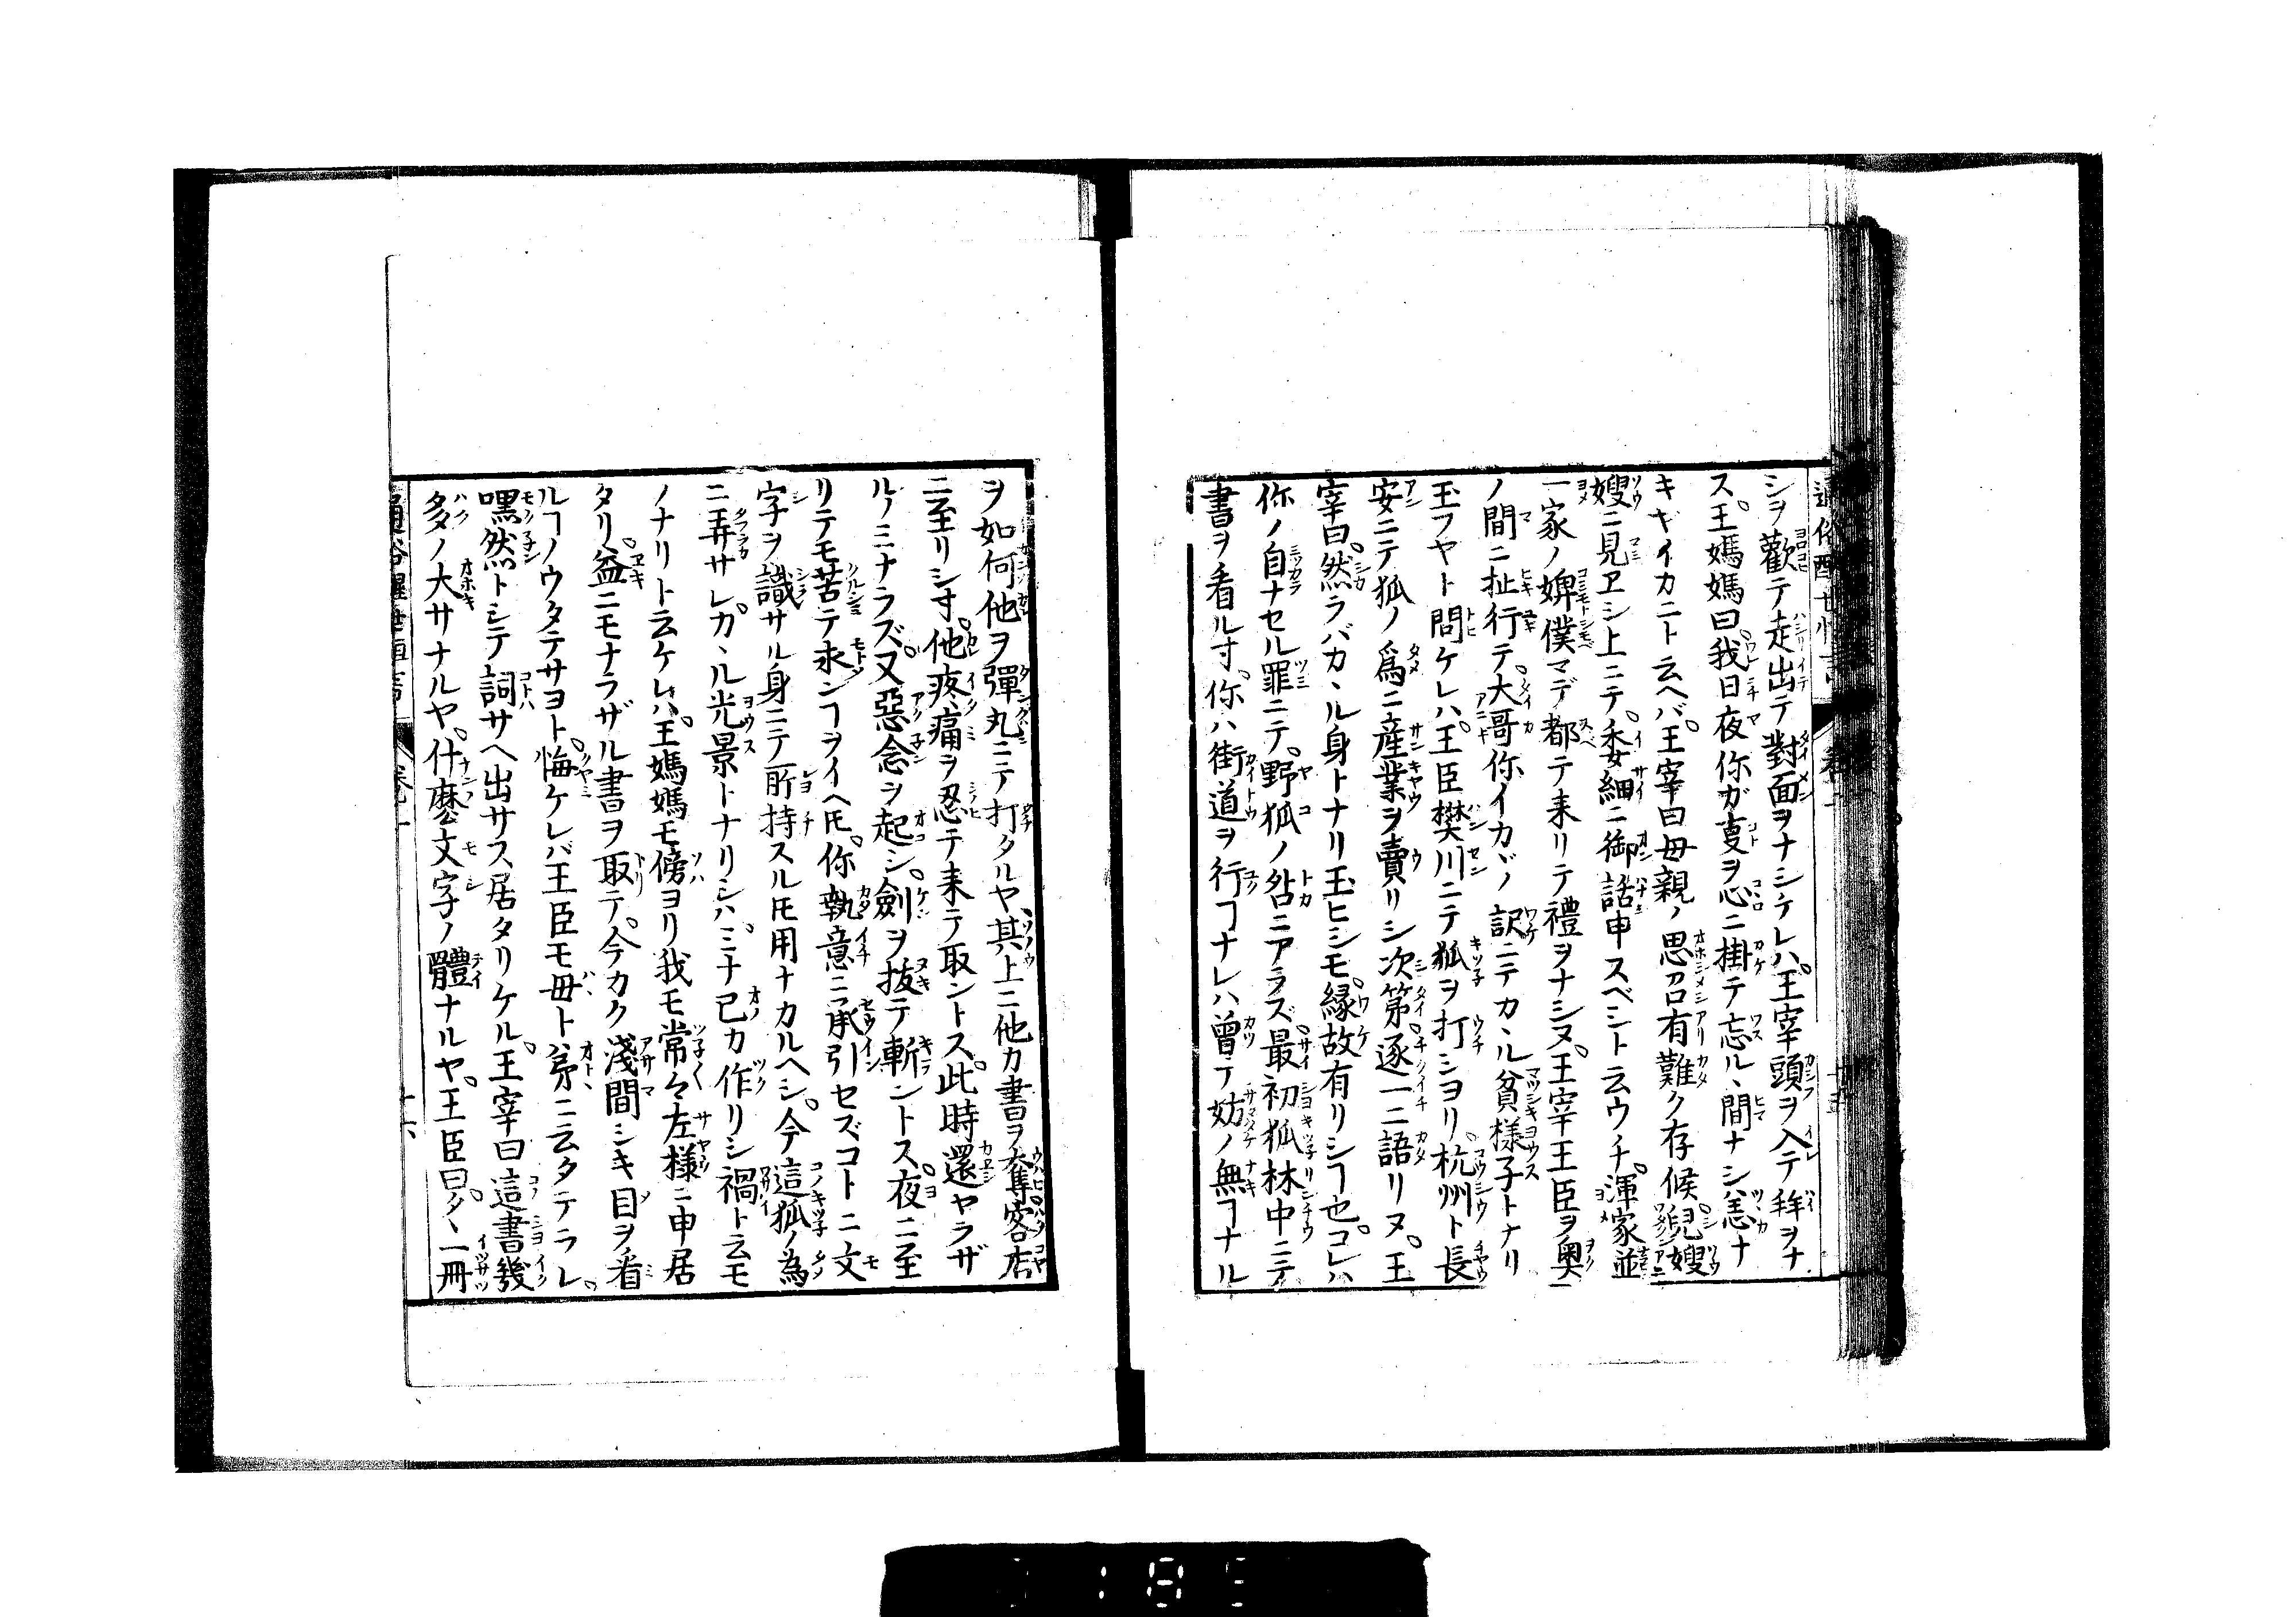 通俗醒世恒言 卷二 十五
シヲ歡テ走出テ對面ヲナシケレハ。王宰頭ヲ入テ拜ヲナ
ス。王媽媽曰我日夜你ガ叓ヲ心ニ掛テ忘ルヽ間ナシ恙ナ
キヤイカニト云ヘバ。王宰曰母親ノ思召有難ク存候。兄嫂
嫂ニ見ヱシ上ニテ。委細ニ御話申スベシト云ウチ。渾家並ニ
一家ノ婢僕マデ都テ来リテ禮ヲナシヌ。王宰王臣ヲ奥一
ノ間ニ扯行テ。大哥你イカヾノ訳ニテカヽル貧様子トナリ
玉フヤト問ケレハ。王臣樊川ニテ狐ヲ打シヨリ。杭州ト長
安ニテ狐ノ爲ニ産業ヲ賣リシ次第。逐一ニ語リヌ。王
宰曰。然ラバカヽル身トナリ玉ヒシモ。縁故有リシヿ也。コレハ
你ノ自ナセル罪ニテ。野狐ノ咎ニアラズ。最初狐林中ニテ
書ヲ看ル寸。你ハ街道ヲ行ヿナレハ曽テ妨ノ無ヿナル
ヲ如何他ヲ彈丸ニテ打タルヤ、其上ニ他カ書ヲ奪。客店
ニ至リシ寸。他疼痛ヲ忍テ来テ取ントス。此時還ヤラザ
ルノミナラズ。又惡念ヲ起シ。劍ヲ抜テ斬ントス。夜ニ至
リテモ苦テ求ンヿヲイヘ𪜈。你執意ニ承引セズコトニ文
字ヲ識サル身ニテ所持スル𪜈用ナカルヘシ。今這狐ノ為
ニ弄サレ。カヽル光景トナリシハ。ミナ已カ作リシ禍ト云モ
ノナリト云ケレハ。王媽媽モ傍ヨリ我モ常々左様ニ申居
タリ。益ニモナラザル書ヲ取テ。今カク淺間シキ目ヲ看
ルヿノウタテサヨト。悔ケレバ王臣モ母ト弟ニ云タテラレ。
嘿然トシテ詞サヘ出サス居タリケル。王宰曰這書幾
多ノ大サナルヤ。什麼文字ノ體ナルヤ。王臣曰。タヽ一冊
通俗醒世恒言 卷二 十六